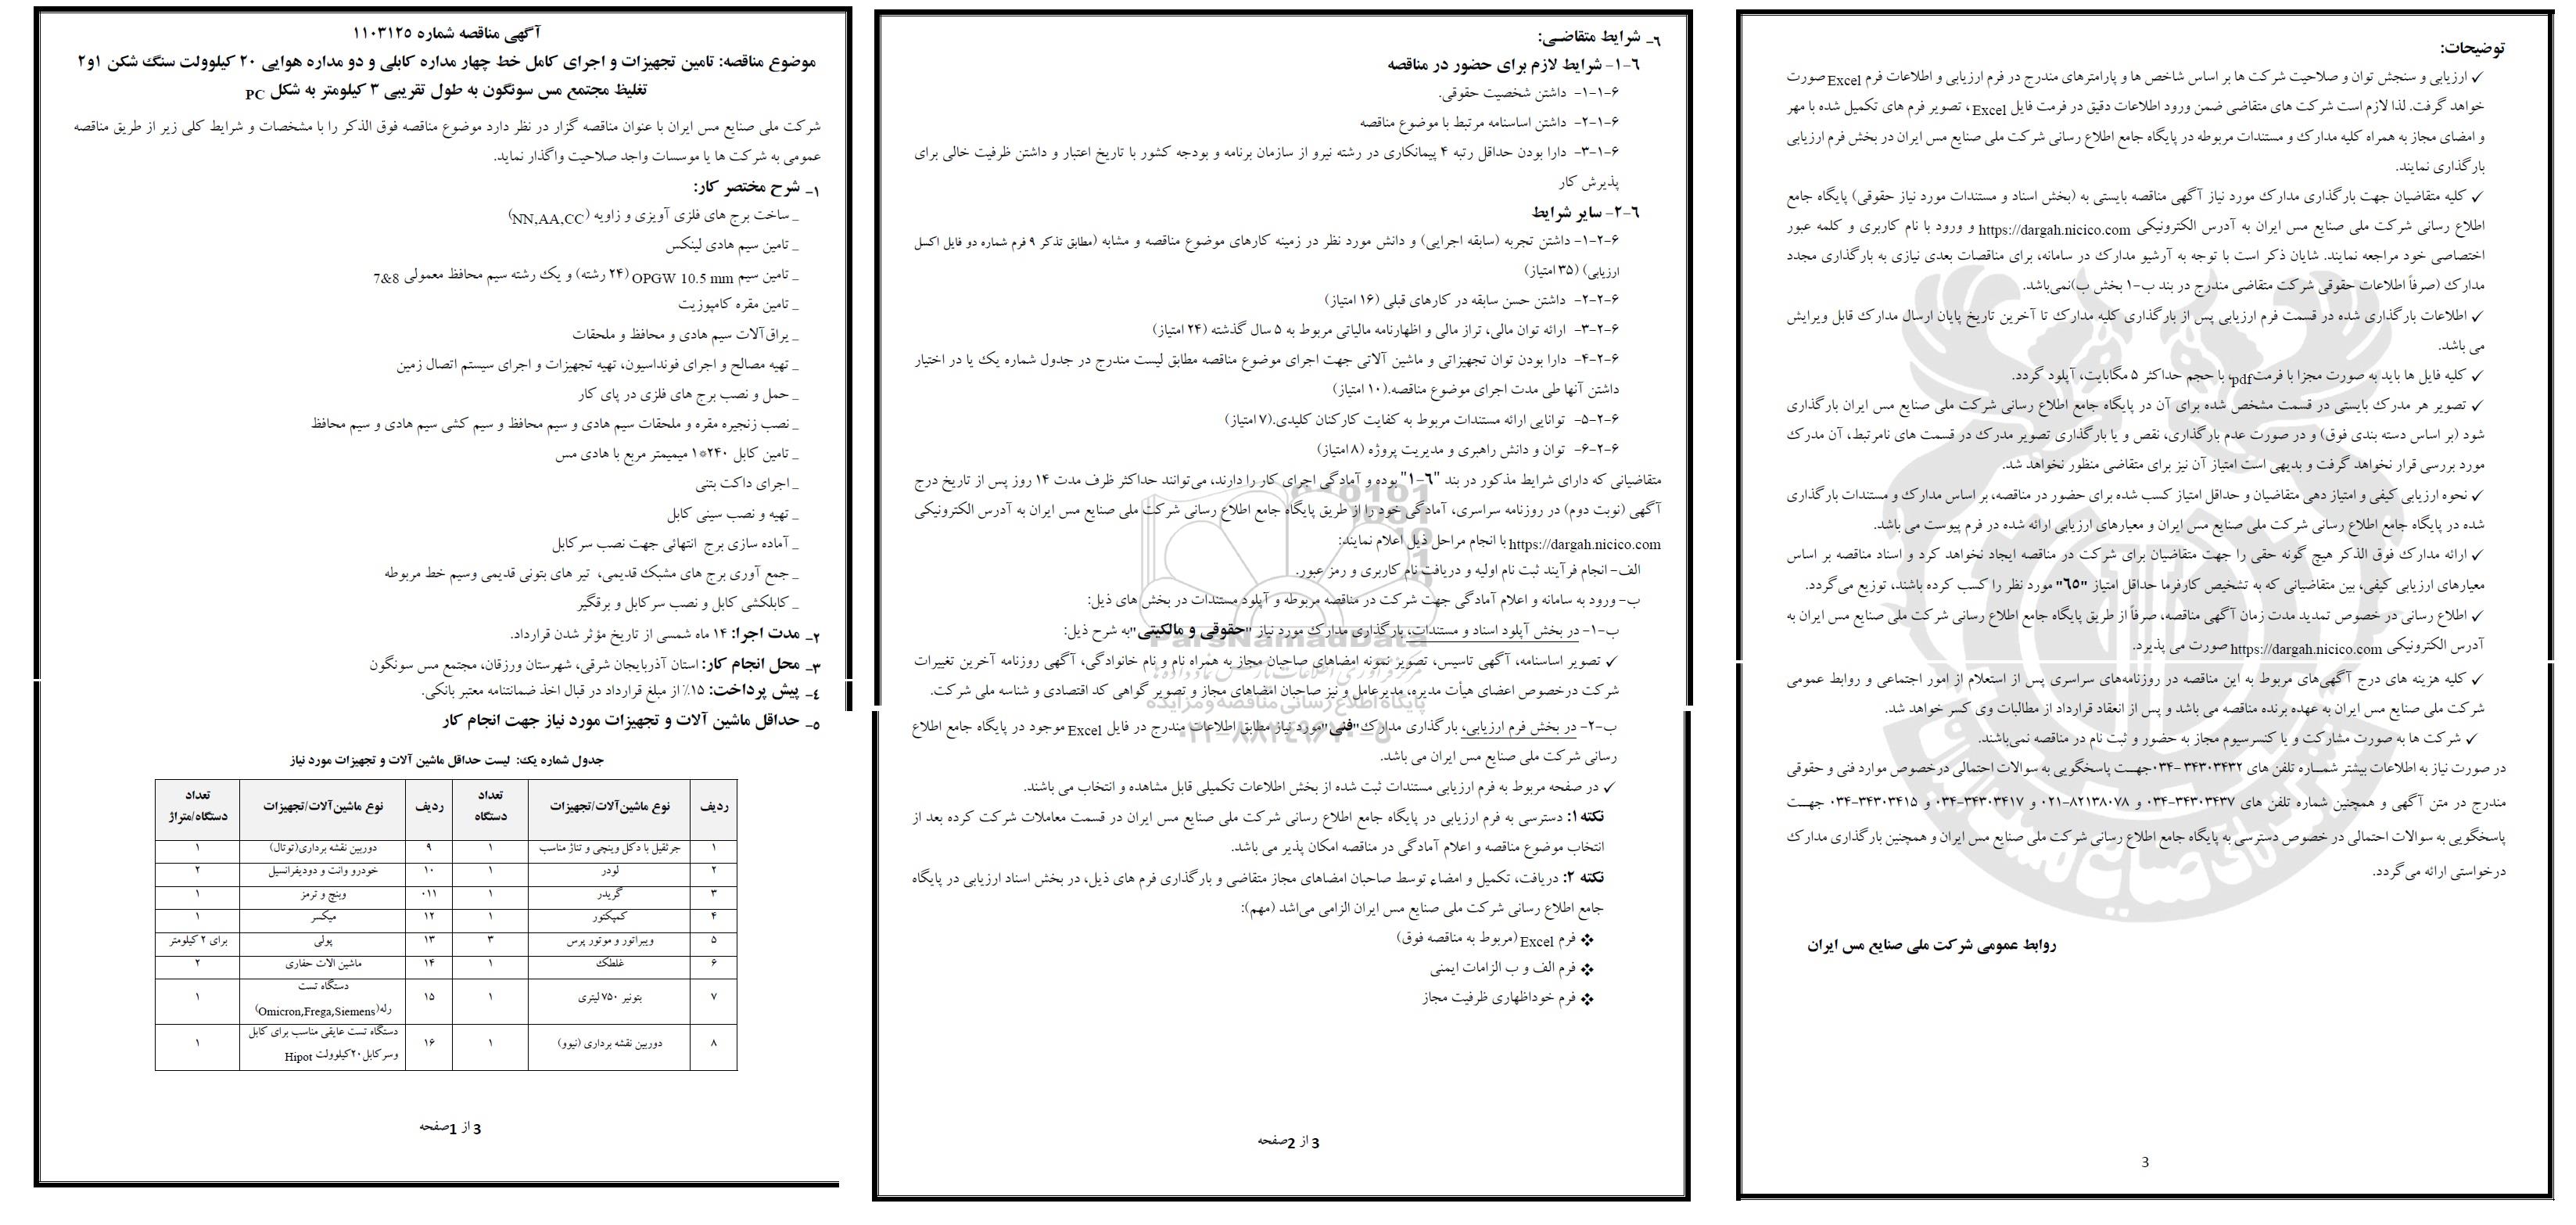 آگهی مناقصه شماره ۱۱۰۳۱۲۵
موضوع مناقصه: تامین تجهیزات و اجرای کامل خط چهار مداره کابلی و دو مداره هوایی ۲۰ کیلوولت سنگ شکن ۱و۲
تغلیظ مجتمع مس سونگون به طول تقریبی ۳ کیلومتر به شکل PC
شرکت ملی صنایع مس ایران با عنوان مناقصه گزار در نظر دارد موضوع مناقصه فوق الذکر را با مشخصات و شرایط کلی زیر از طریق مناقصه
عمومی به شرکت ها یا موسسات واجد صلاحیت واگذار نماید.
۱ـ شرح مختصر کار:
_ ساخت برج های فلزی آویزی و زاویه (NN,AA,CC)
_ تامین سیم هادی لینکس
_ تامین سیم OPGW 10.5 mm (۲۴ رشته) و یک رشته سیم محافظ معمولی 7&8
_ تامین مقره کامپوزیت
_ یراق‌آلات سیم هادی و محافظ و ملحقات
_ تهیه مصالح و اجرای فونداسیون، تهیه تجهیزات و اجرای سیستم اتصال زمین
_ حمل و نصب برج های فلزی در پای کار
_ نصب زنجیره مقره و ملحقات سیم هادی و سیم محافظ و سیم کشی سیم هادی و سیم محافظ
_ تامین کابل ۲۴۰*۱ میمیمتر مربع با هادی مس
_ اجرای داکت بتنی
_ تهیه و نصب سینی کابل
_ آماده سازی برج انتهائی جهت نصب سرکابل
_ جمع آوری برج های مشبک قدیمی، تیر های بتونی قدیمی وسیم خط مربوطه
_ کابلکشی کابل و نصب سرکابل و برقگیر
۲ـ مدت اجرا: ۱۴ ماه شمسی از تاریخ مؤثر شدن قرارداد.
۳ـ محل انجام کار: استان آذربایجان شرقی، شهرستان ورزقان، مجتمع مس سونگون
۴ـ پیش پرداخت: ۱۵٪ از مبلغ قرارداد در قبال اخذ ضمانتنامه معتبر بانکی.
۵ـ حداقل ماشین آلات و تجهیزات مورد نیاز جهت انجام کار
جدول شماره یک: لیست حداقل ماشین آلات و تجهیزات مورد نیاز
ردیف نوع ماشین‌آلات/تجهیزات تعداد دستگاه ردیف نوع ماشین‌آلات/تجهیزات تعداد دستگاه/متراژ
۱ جرثقیل با دکل وینچی و تناژ مناسب ۱ ۹ دوربین نقشه برداری(توتال) ۱
۲ لودر ۱ ۱۰ خودرو وانت و دودیفرانسیل ۲
۳ گریدر ۱ ۰۱۱ وینچ و ترمز ۱
۴ کمپکتور ۱ ۱۲ میکسر ۱
۵ ویبراتور و موتور پرس ۳ ۱۳ پولی برای ۲ کیلومتر
۶ غلطک ۱ ۱۴ ماشین الات حفاری ۲
۷ بتونیر ۷۵۰ لیتری ۱ ۱۵ دستگاه تست رله(Omicron,Frega,Siemens) ۱
۸ دوربین نقشه برداری (نیوو) ۱ ۱۶ دستگاه تست عایقی مناسب برای کابل وسرکابل۲۰کیلوولت Hipot ۱
صفحه1 از 3
۶ـ شرایط متقاضـی:
۶-۱- شرایط لازم برای حضور در مناقصه
۶-۱-۱- داشتن شخصیت حقوقی.
۶-۱-۲- داشتن اساسنامه مرتبط با موضوع مناقصه
۶-۱-۳- دارا بودن حداقل رتبه ۴ پیمانکاری در رشته نیرو از سازمان برنامه و بودجه کشور با تاریخ اعتبار و داشتن ظرفیت خالی برای
پذیرش کار
۶-۲- سایر شرایط
۶-۲-۱- داشتن تجربه (سابقه اجرایی) و دانش مورد نظر در زمینه کارهای موضوع مناقصه و مشابه (مطابق تذکر ۹ فرم شماره دو فایل اکسل
ارزیابی) (۳۵ امتیاز)
۶-۲-۲- داشتن حسن سابقه در کارهای قبلی (۱۶ امتیاز)
۶-۲-۳- ارائه توان مالی، تراز مالی و اظهارنامه مالیاتی مربوط به ۵ سال گذشته (۲۴ امتیاز)
۶-۲-۴- دارا بودن توان تجهیزاتی و ماشین آلاتی جهت اجرای موضوع مناقصه مطابق لیست مندرج در جدول شماره یک یا در اختیار
داشتن آنها طی مدت اجرای موضوع مناقصه.(۱۰ امتیاز)
۶-۲-۵- توانایی ارائه مستندات مربوط به کفایت کارکنان کلیدی.(۷ امتیاز)
۶-۲-۶- توان و دانش راهبری و مدیریت پروژه (۸ امتیاز)
متقاضیانی که دارای شرایط مذکور در بند "۶-۱" بوده و آمادگی اجرای کار را دارند، می‌توانند حداکثر ظرف مدت ۱۴ روز پس از تاریخ درج
آگهی (نوبت دوم) در روزنامه سراسری، آمادگی خود را از طریق پایگاه جامع اطلاع رسانی شرکت ملی صنایع مس ایران به آدرس الکترونیکی
https://dargah.nicico.com با انجام مراحل ذیل اعلام نمایند:
الف- انجام فرآیند ثبت نام اولیه و دریافت نام کاربری و رمز عبور.
ب- ورود به سامانه و اعلام آمادگی جهت شرکت در مناقصه مربوطه و آپلود مستندات در بخش های ذیل:
ب-۱- در بخش آپلود اسناد و مستندات، بارگذاری مدارک مورد نیاز "حقوقی و مالکیتی"به شرح ذیل:
ParsNamadData
✓ تصویر اساسنامه، آگهی تاسیس، تصویر نمونه امضاهای صاحبان مجاز به همراه نام و نام خانوادگی، آگهی روزنامه آخرین تغییرات
شرکت درخصوص اعضای هیأت مدیره، مدیرعامل و نیز صاحبان امضاهای مجاز و تصویر گواهی کد اقتصادی و شناسه ملی شرکت.
پایگاه اطلاع رسانی مناقصه و مزایده
ب-۲- در بخش فرم ارزیابی، بارگذاری مدارک"فنی"مورد نیاز مطابق اطلاعات مندرج در فایل Excel موجود در پایگاه جامع اطلاع
رسانی شرکت ملی صنایع مس ایران می باشد.
✓ در صفحه مربوط به فرم ارزیابی مستندات ثبت شده از بخش اطلاعات تکمیلی قابل مشاهده و انتخاب می باشند.
نکته۱: دسترسی به فرم ارزیابی در پایگاه جامع اطلاع رسانی شرکت ملی صنایع مس ایران در قسمت معاملات شرکت کرده بعد از
انتخاب موضوع مناقصه و اعلام آمادگی در مناقصه امکان پذیر می باشد.
نکته ۲: دریافت، تکمیل و امضاء توسط صاحبان امضاهای مجاز متقاضی و بارگذاری فرم های ذیل، در بخش اسناد ارزیابی در پایگاه
جامع اطلاع رسانی شرکت ملی صنایع مس ایران الزامی می‌باشد (مهم):
❖ فرم Excel (مربوط به مناقصه فوق)
❖ فرم الف و ب الزامات ایمنی
❖ فرم خوداظهاری ظرفیت مجاز
صفحه2 از 3
توضیحات:
✓ ارزیابی و سنجش توان و صلاحیت شرکت ها بر اساس شاخص ها و پارامترهای مندرج در فرم ارزیابی و اطلاعات فرم Excel صورت
خواهد گرفت. لذا لازم است شرکت های متقاضی ضمن ورود اطلاعات دقیق در فرمت فایل Excel، تصویر فرم های تکمیل شده با مهر
و امضای مجاز به همراه کلیه مدارک و مستندات مربوطه در پایگاه جامع اطلاع رسانی شرکت ملی صنایع مس ایران در بخش فرم ارزیابی
بارگذاری نمایند.
✓ کلیه متقاضیان جهت بارگذاری مدارک مورد نیاز آگهی مناقصه بایستی به (بخش اسناد و مستندات مورد نیاز حقوقی) پایگاه جامع
اطلاع رسانی شرکت ملی صنایع مس ایران به آدرس الکترونیکی https://dargah.nicico.com و ورود با نام کاربری و کلمه عبور
اختصاصی خود مراجعه نمایند. شایان ذکر است با توجه به آرشیو مدارک در سامانه، برای مناقصات بعدی نیازی به بارگذاری مجدد
مدارک (صرفاً اطلاعات حقوقی شرکت متقاضی مندرج در بند ب-۱ بخش ب)نمی‌باشد.
✓ اطلاعات بارگذاری شده در قسمت فرم ارزیابی پس از بارگذاری کلیه مدارک تا آخرین تاریخ پایان ارسال مدارک قابل ویرایش
می باشد.
✓ کلیه فایل ها باید به صورت مجزا با فرمت pdf، با حجم حداکثر ۵ مگابایت، آپلود گردد.
✓ تصویر هر مدرک بایستی در قسمت مشخص شده برای آن در پایگاه جامع اطلاع رسانی شرکت ملی صنایع مس ایران بارگذاری
شود (بر اساس دسته بندی فوق) و در صورت عدم بارگذاری، نقص و یا بارگذاری تصویر مدرک در قسمت های نامرتبط، آن مدرک
مورد بررسی قرار نخواهد گرفت و بدیهی است امتیاز آن نیز برای متقاضی منظور نخواهد شد.
✓ نحوه ارزیابی کیفی و امتیاز دهی متقاضیان و حداقل امتیاز کسب شده برای حضور در مناقصه، بر اساس مدارک و مستندات بارگذاری
شده در پایگاه جامع اطلاع رسانی شرکت ملی صنایع مس ایران و معیارهای ارزیابی ارائه شده در فرم پیوست می باشد.
✓ ارائه مدارک فوق الذکر هیچ گونه حقی را جهت متقاضیان برای شرکت در مناقصه ایجاد نخواهد کرد و اسناد مناقصه بر اساس
معیارهای ارزیابی کیفی، بین متقاضیانی که به تشخیص کارفرما حداقل امتیاز "۶۵" مورد نظر را کسب کرده باشند، توزیع می‌گردد.
✓ اطلاع رسانی در خصوص تمدید مدت زمان آگهی مناقصه، صرفاً از طریق پایگاه جامع اطلاع رسانی شرکت ملی صنایع مس ایران به
آدرس الکترونیکی https://dargah.nicico.com صورت می پذیرد.
✓ کلیه هزینه های درج آگهی‌های مربوط به این مناقصه در روزنامه‌های سراسری پس از استعلام از امور اجتماعی و روابط عمومی
شرکت ملی صنایع مس ایران به عهده برنده مناقصه می باشد و پس از انعقاد قرارداد از مطالبات وی کسر خواهد شد.
✓ شرکت ها به صورت مشارکت و یا کنسرسیوم مجاز به حضور و ثبت نام در مناقصه نمی‌باشند.
در صورت نیاز به اطلاعات بیشتر شمـاره تلفن های ۳۴۳۰۳۴۳۲-۰۳۴جهـت پاسخگویی به سوالات احتمالی درخصوص موارد فنی و حقوقی
مندرج در متن آگهی و همچنین شماره تلفن های ۳۴۳۰۳۴۳۷-۰۳۴ و ۸۲۱۳۸۰۷۸-۰۲۱ و ۳۴۳۰۳۴۱۷-۰۳۴ و ۳۴۳۰۳۴۱۵-۰۳۴ جهـت
پاسخگویی به سوالات احتمالی در خصوص دسترسی به پایگاه جامع اطلاع رسانی شرکت ملی صنایع مس ایران و همچنین بارگذاری مدارک
درخواستی ارائه می‌گردد.
روابط عمومی شرکت ملی صنایع مس ایران
3